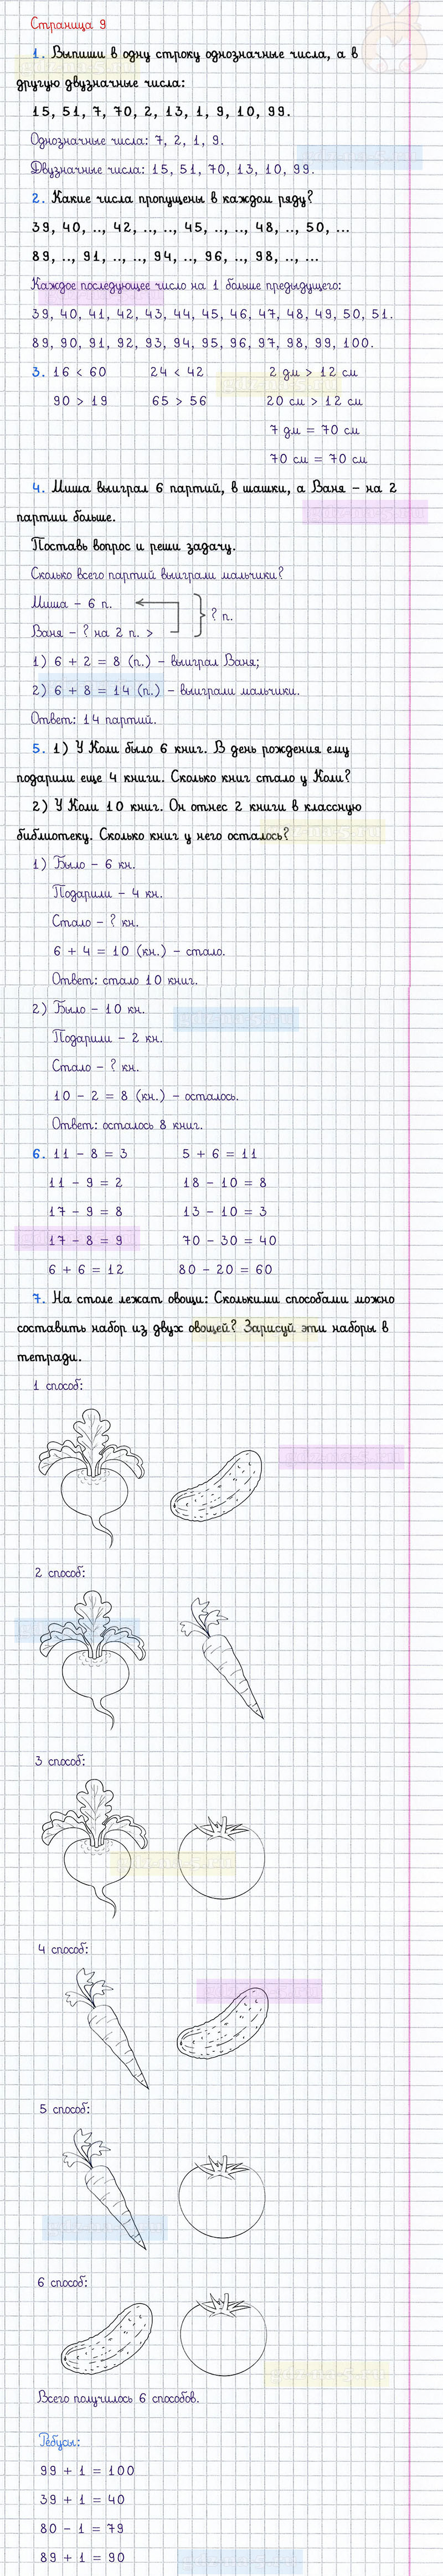 Страница 9
1. Выпиши в одну строку однозначные числа, а в
другую двузначные числа:
15, 51, 7, 70, 2, 13, 1, 9, 10, 99.
Однозначные числа: 7, 2, 1, 9.
Двузначные числа: 15, 51, 70, 13, 10, 99.
2. Какие числа пропущены в каждом ряду?
39, 40, .., 42, .., .., 45, .., .., 48, .., 50, ...
89, .., 91, .., .., 94, .., 96, .., 98, .., ...
Каждое последующее число на 1 больше предыдущего:
39, 40, 41, 42, 43, 44, 45, 46, 47, 48, 49, 50, 51.
89, 90, 91, 92, 93, 94, 95, 96, 97, 98, 99, 100.
3. 16 < 60 24 < 42 2 дм > 12 см
90 > 19 65 > 56 20 см > 12 см
7 дм = 70 см
70 см = 70 см
4. Миша выиграл 6 партий, в шашки, а Ваня – на 2
партии больше.
Поставь вопрос и реши задачу.
Сколько всего партий выиграли мальчики?
Миша – 6 п.
? п.
Ваня – ? на 2 п. >
1) 6 + 2 = 8 (п.) – выиграл Ваня;
2) 6 + 8 = 14 (п.) – выиграли мальчики.
Ответ: 14 партий.
5. 1) У Коли было 6 книг. В день рождения ему
подарили еще 4 книги. Сколько книг стало у Коли?
2) У Коли 10 книг. Он отнес 2 книги в классную
библиотеку. Сколько книг у него осталось?
1) Было – 6 кн.
Подарили – 4 кн.
Стало – ? кн.
6 + 4 = 10 (кн.) – стало.
Ответ: стало 10 книг.
2) Было – 10 кн.
Подарили – 2 кн.
Стало – ? кн.
10 – 2 = 8 (кн.) – осталось.
Ответ: осталось 8 книг.
6. 11 – 8 = 3 5 + 6 = 11
11 – 9 = 2 18 – 10 = 8
17 – 9 = 8 13 – 10 = 3
17 – 8 = 9 70 – 30 = 40
6 + 6 = 12 80 – 20 = 60
7. На столе лежат овощи: Сколькими способами можно
составить набор из двух овощей? Зарисуй эти наборы в
тетради.
1 способ:
2 способ:
3 способ:
4 способ:
5 способ:
6 способ:
Всего получилось 6 способов.
Ребусы:
99 + 1 = 100
39 + 1 = 40
80 – 1 = 79
89 + 1 = 90